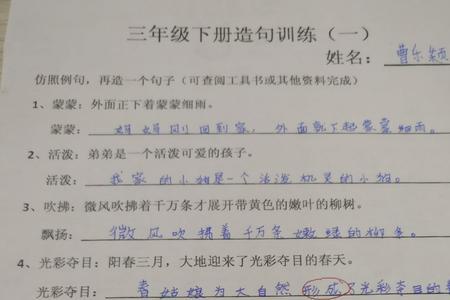 三年级下册造句训练（一）
姓名：曹乐颖
仿照例句，再造一个句子（可查阅工具书或其他资料完成）
1、蒙蒙：外面正下着蒙蒙细雨。
蒙蒙：妈妈刚回到家，外面就下起蒙蒙细雨。
2、活泼：弟弟是一个活泼可爱的孩子。
活泼：我家的小猫是一个活泼机灵的小猫。
3、吹拂：微风吹拂着千万条才展开带黄色的嫩叶的柳树。
飘扬：微风吹拂着千万条嫩绿的柳条。
4、光彩夺目：阳春三月，大地迎来了光彩夺目的春天。
光彩夺目：春姑娘为大自然形成了光彩夺目的春